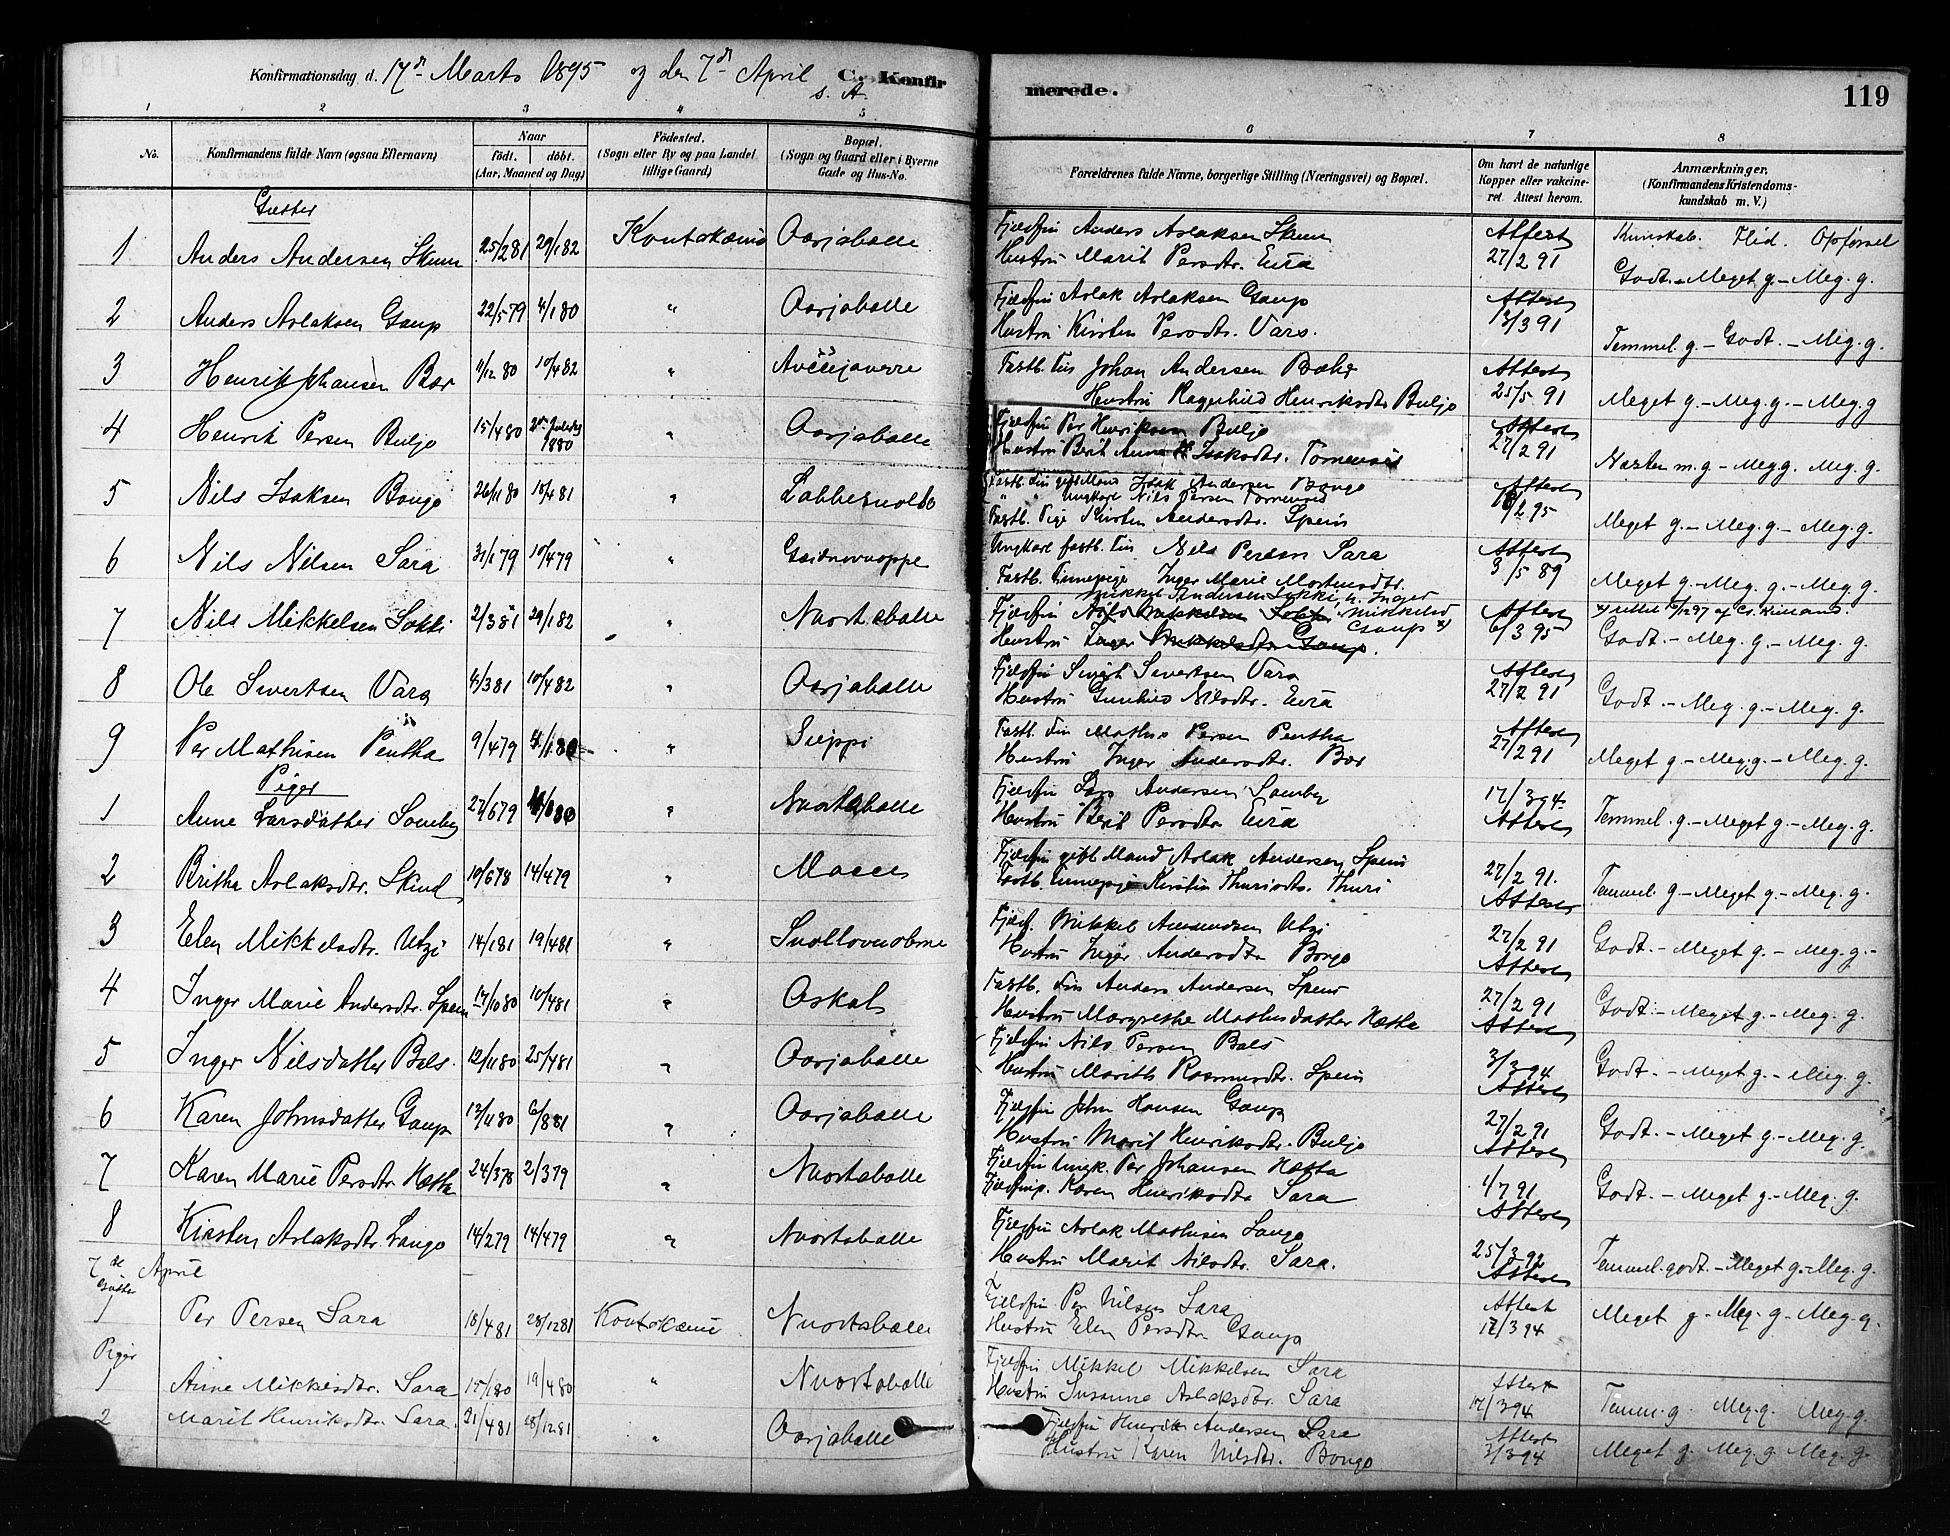 Konfirmationsdag d. 17de Marts 1895 og den 7de April s. A.
C. Konfirmerede.
119
1 2 3 4 5 6 7 8
No.
Konfirmandens fulde Navn (ogsaa Efternavn)
Naar
födt. döbt.
(Aar, Maaned og Dag)
Födested.
(Sogn eller By og paa Landet tillige Gaard)
Bopæl.
(Sogn og Gaard eller i Byerne Gade og Hus-No.
Forældrenes fulde Navne, borgerlige Stilling (Næringsvei) og Bopæl.
Om havt de naturlige Kopper eller vakcineret. Attest herom.
Anmærkninger.
(Konfirmandens Kristendomskundskab m. V.)
Gutter
Kunskab. Flid. Opførsel
1 Anders Andersen Skum 25/2 81 29/1 82 Koutokæino Oarjabælle Fjeldfin Anders Aslaksen Skum Attest
Hustru Marit Persdtr. Eira 27/2 91 Godt. - Meget g. - Meg. g.
2 Anders Aslaksen Gaup 22/5 79 4/1 80 " Oarjabælle Fjeldfin Aslak Aslaksen Gaup Attest
Hustru Kirsten Persdtr. Vars. 13/3 91 Temmel. g. - Godt. - Meg. g.
3 Henrik Johansen Bær 11/12 80 10/4 82 " Avččejavrre Fastb. Fin Johan Andersen Bæhr Attest
Hustru Ragnhild Henriksdtr Buljo 25/5 91 Meget g. - Meg. g. - Meg. g
4 Henrik Persen Buljo 15/4 80 1880 " Oarjabælle Fjeldfin Per Henriksen Buljo Attest
Hustru Berit Anna Isaksdtr. Tornensis 27/2 91 Næsten m. g - Meg g. Meg. g.
5 Nils Isaksen Bongo 26/11 80 10/4 81 " Fastb. Fin gift Mand Isak Andersen Bongo Attest
" " Ungkarl Nils Persen Tornensis
Fastb. Pige Kirsten Andersdtr. Spein 2 95 Meget g. - Meg. g. - Meg. g.
6 Nils Nilsen Sara 31/1 79 10/4 79 " Gæidnovuoppe Ungkarl fastb. Fin Nils Persen Sara Attest
Fastb. Finnepige Inger Marie Mortensdtr. 3/5 89 Meget g. - Meg. g. - Meg. g.
Mikkel Andersen Sokki, h. Inger
7 Nils Mikkelsen Sokki 2/3 81 29/1 82 " Nuortabælle Fjeldfin Mikkelsd Gaup x) Attest x) rettet
Hustru Inger Mikkelsdtr Gaup. 6/3 95 Godt. - Meg. g. - Meg. g.
8 Ole Sivertsen Vars 4/3 81 10/4 82 " Oarjabælle Fjeldfin Sivert Sivertsen Vars Attest
Hustru Gunhild Nilsdtr. Eira 27/2 91 Godt. - Meg. g. - Meg. g.
9 Per Mathisen Pentha 9/4 79 4/1 80 " Sieppi Fastb. Fin Mathis Persen Pentha Attest
Hustru Inger Andersdtr. Bær 27/2 91 Meget g. - Meg. g. - Meg. g.
Piger
1 Anne Larsdatter Somby 27/6 79 4/1 80 " Nuortabælle Fjeldfin Lars Andersen Somby 17/3 94
Hustru Berit Persdtr Eira Attest Temmel. g. - Meget g. - Meg. g.
2 Britha Aslaksdtr. Skind 10/6 78 14/4 79 " Maece Fjeldfin gift Mand Aslak Andersen Spein 27/2 91.
Fastb. Finnepige Kirstin Thurisdtr. Thuri Attest Temmel. g - Meget g. - Meg. g.
3 Elen Mikkelsdtr. Utzi 14/1 81 19/4 81 " Suollovuobme Fjeldf. Mikkel Amundsen Utzi 27/2 91
Hustru Inger Andersdtr Bongo Attest Godt. - Meget g. - Meg. g.-
4 Inger Marie Andersdtr. Spein 17/10 80 10/4 81 " Oskal Fastb. Fin Anders Andersen Spein 27/2 91
Hustru Margrethe Mathisdatter Hætta Attest Godt. - Meget g. - Meg. g.
5 Inger Nilsdatter Bals. 12/11 80 25/4 81 " Oarjabælle Fjeldfin Nils Persen Bals 3/3 94
Hustru Marith Rasmusdtr. Spein Attest Godt. - Meget g. - Meg. g.
6 Karen Johnsdatter Gaup 13/11 80 6/8 81 " Oarjabælle Fjeldfin John Hansen Gaup 27/2 91
Hustru Marit Henriksdtr. Buljo Attest Godt. - Meget g. - Meg. g.
7 Karen Marie Persdtr Hætta 24/3 78 2/3 79 " Nuortabælle Fjeldfin Ungk. Per Johansen Hætta 1/7 91
Fjeldfinp. Karen Henriksdtr Sara Attest Godt. - Meget g. - Meg. g.
8 Kirsten Aslaksdtr. Lango 14/2 79 14/4 79 " Nuortabælle Fjeldfin Aslak Mathisen Lango 25/3 92
Hustru Marit Nilsdtr. Sara. Attest Temmel. godt. - Meget g. - Meg. g.
7de April
Gutter
1 Per Persen Sara 18/4 81 28/12 81 Koutokæino Nuortabælle Fjeldfin Per Nilsen Sara Attest
Hustru Elen Persdtr Gaup 17/3 94 Meget g - Meg. g - Meg. g.
Piger
1 Anne Mikkelsdtr. Sara 15/1 80 19/4 80 " Nuortabælle Fjeldfin Mikkel Mikkelsen Sara Attest
Hustru Susanne Aslaksdtr. Sara 17/3 94 Temm. g. Meg. g. Meg. g.
2 Marit Henriksdtr. Sara. 21/4 81 28/12 81 " Oarjabælle Fjeldfin Henrik Andersen Sara Attest
Hustru Karen Nilsdtr. Bongo 3/3 94 Meget g. Meg. g. Meg. g.